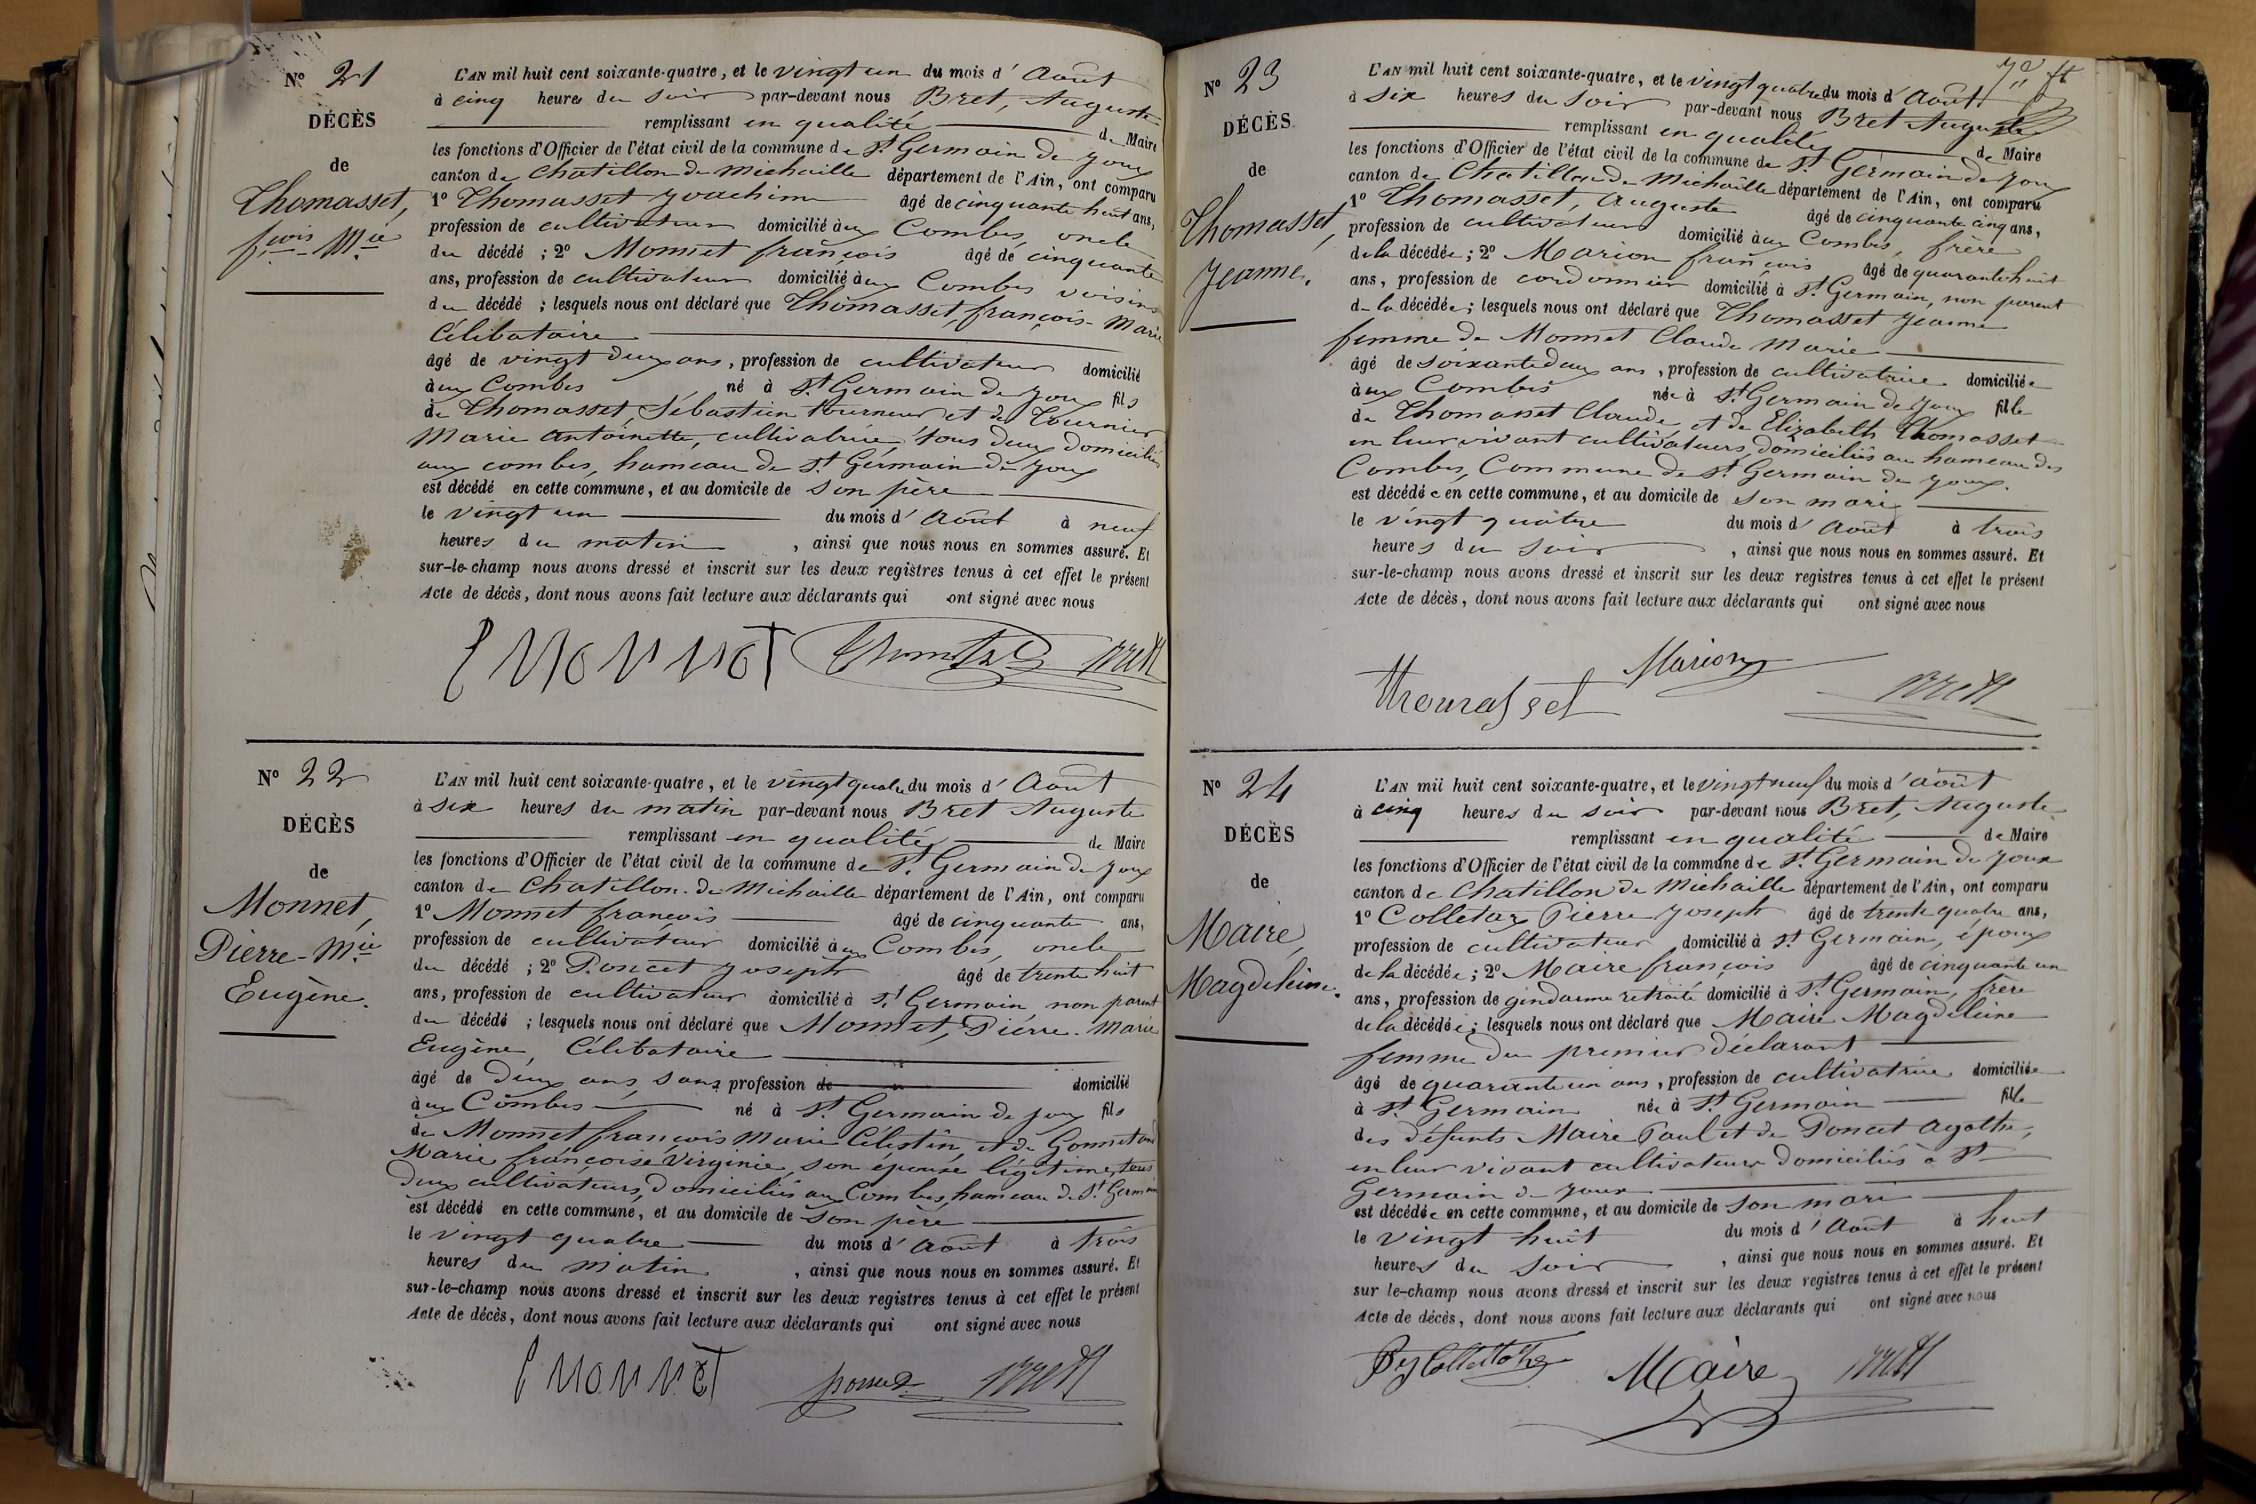 N° 21
DÉCÈS
de
Thomasset,
f.çois-M.ie
L'AN mil huit cent soixante-quatre, et le vingt un du mois d'Août
à cinq heures du soir par-devant nous Bret, Auguste
remplissant en qualité de Maire
les fonctions d'Officier de l'état civil de la commune de St Germain de Joux
canton de Chatillon de Michaille département de l'Ain, ont comparu
1° Thomasset Joachim âgé de cinquante huit ans,
profession de cultivateur domicilié aux Combes, oncle
du décédé ; 2° Monnet françois âgé de cinquante
ans, profession de cultivateur domicilié aux Combes voisin
du décédé ; lesquels nous ont déclaré que Thomasset, françois-Marie
Célibataire
âgé de vingt deux ans, profession de cultivateur domicilié
aux Combes né à St Germain de Joux fils
de Thomasset, Sébastien tourneur et de Tournier
Marie Antoinette, cultivatrice, tous deux domiciliés
aux combes, hameau de St Germain de Joux
est décédé en cette commune, et au domicile de son père
le vingt un du mois d'Août à neuf
heures du matin, ainsi que nous nous en sommes assuré. Et
sur-le-champ nous avons dressé et inscrit sur les deux registres tenus à cet effet le présent
Acte de décès, dont nous avons fait lecture aux déclarants qui ont signé avec nous
f monnet Bret
N° 22
DÉCÈS
de
Monnet,
Pierre-M.ie
Eugène.
L'AN mil huit cent soixante-quatre, et le vingt quatre du mois d'Août
à six heures du matin par-devant nous Bret Auguste
remplissant en qualité de Maire
les fonctions d'Officier de l'état civil de la commune de St Germain de Joux
canton de Chatillon de Michaille département de l'Ain, ont comparu
1° Monnet françois âgé de cinquante ans,
profession de cultivateur domicilié aux Combes, oncle
du décédé ; 2° Poncet Joseph âgé de trente huit
ans, profession de cultivateur domicilié à St Germain non parent
du décédé ; lesquels nous ont déclaré que Monnet, Pierre-Marie
Eugène, Célibataire
âgé de deux ans, sans profession de domicilié
aux Combes né à St Germain de Joux fils
de Monnet françois Marie Célestin, et de Gonnetand
Marie françoise Virginie, son épouse légitime, tous
deux cultivateurs, domiciliés aux Combes, hameau de St Germain
est décédé en cette commune, et au domicile de son père
le vingt quatre du mois d'Août à trois
heures du matin, ainsi que nous nous en sommes assuré. Et
sur-le-champ nous avons dressé et inscrit sur les deux registres tenus à cet effet le présent
Acte de décès, dont nous avons fait lecture aux déclarants qui ont signé avec nous
f monnet poncet Bret
N° 23
DÉCÈS
de
Thomasset,
Jeanne.
L'AN mil huit cent soixante-quatre, et le vingt quatre du mois d'Août
à six heures du soir par-devant nous Bret Auguste
remplissant en qualité de Maire
les fonctions d'Officier de l'état civil de la commune de St Germain de Joux
canton de Chatillon de Michaille département de l'Ain, ont comparu
1° Thomasset, Auguste âgé de cinquante cinq ans,
profession de cultivateur domicilié aux Combes, frère
de la décédée ; 2° Marion françois âgé de quarante huit
ans, profession de cordonnier domicilié à St Germain, non parent
de la décédée ; lesquels nous ont déclaré que Thomasset Jeanne
femme de Monnet Claude Marie
âgé de soixante deux ans, profession de cultivatrice domiciliée
aux Combes née à St Germain de Joux fille
de Thomasset Claude et de Elizabeth Thomasset
en leur vivant cultivateurs, domiciliés au hameau des
Combes, Commune de St Germain de Joux.
est décédée en cette commune, et au domicile de son mari
le vingt quatre du mois d'Août à trois
heures du soir, ainsi que nous nous en sommes assuré. Et
sur-le-champ nous avons dressé et inscrit sur les deux registres tenus à cet effet le présent
Acte de décès, dont nous avons fait lecture aux déclarants qui ont signé avec nous
Thomasset Marion Bret
N° 24
DÉCÈS
de
Maire,
Magdeleine.
L'AN mil huit cent soixante-quatre, et le vingt neuf du mois d'Août
à cinq heures du soir par-devant nous Bret, Auguste
remplissant en qualité de Maire
les fonctions d'Officier de l'état civil de la commune de St Germain de Joux
canton de Chatillon de Michaille département de l'Ain, ont comparu
1° Colletaz Pierre Joseph âgé de trente quatre ans,
profession de cultivateur domicilié à St Germain, époux
de la décédée ; 2° Maire françois âgé de cinquante un
ans, profession de gendarme retraité domicilié à St Germain, frère
de la décédée ; lesquels nous ont déclaré que Maire Magdeleine
femme du premier déclarant
âgé de quarante un ans, profession de cultivatrice domiciliée
à St Germain née à St Germain fille
des défunts Maire Paul et de Poncet Agathe,
en leur vivant cultivateurs domiciliés à St
Germain de Joux
est décédée en cette commune, et au domicile de son mari
le vingt huit du mois d'Août à huit
heures du soir, ainsi que nous nous en sommes assuré. Et
sur le-champ nous avons dressé et inscrit sur les deux registres tenus à cet effet le présent
Acte de décès, dont nous avons fait lecture aux déclarants qui ont signé avec nous
Maire Bret